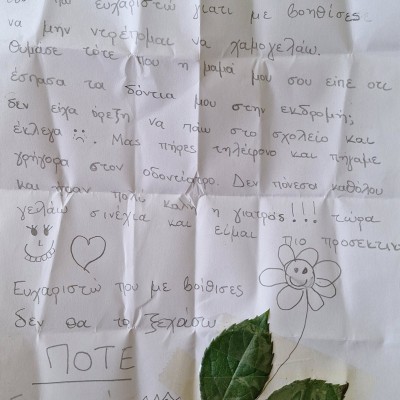 σου που ευχαριστώ γιατι με βοηθίσες
να μην ντρέπομαι να χαμογελάω.
Θυμάσε τότε που η μαμά μου σου είπε οτι
έσπασα τα δόντια μου στην εκδρομή;
δεν είχα όρεξη να πάω στο σχολείο και
έκλεγα. Μας πήρες τηλέφωνο και πήγαμε
γρήγορα στον οδοντίατρο. Δεν πόνεσα καθόλου
και ήταν πολύ καλή η γιατρός!!! τώρα
γελάω σινέχια και είμαι πιο προσεκτικ
Ευχαριστώ που με βοίθισες
δεν θα το ξεχάσω
ΠΟΤΕ